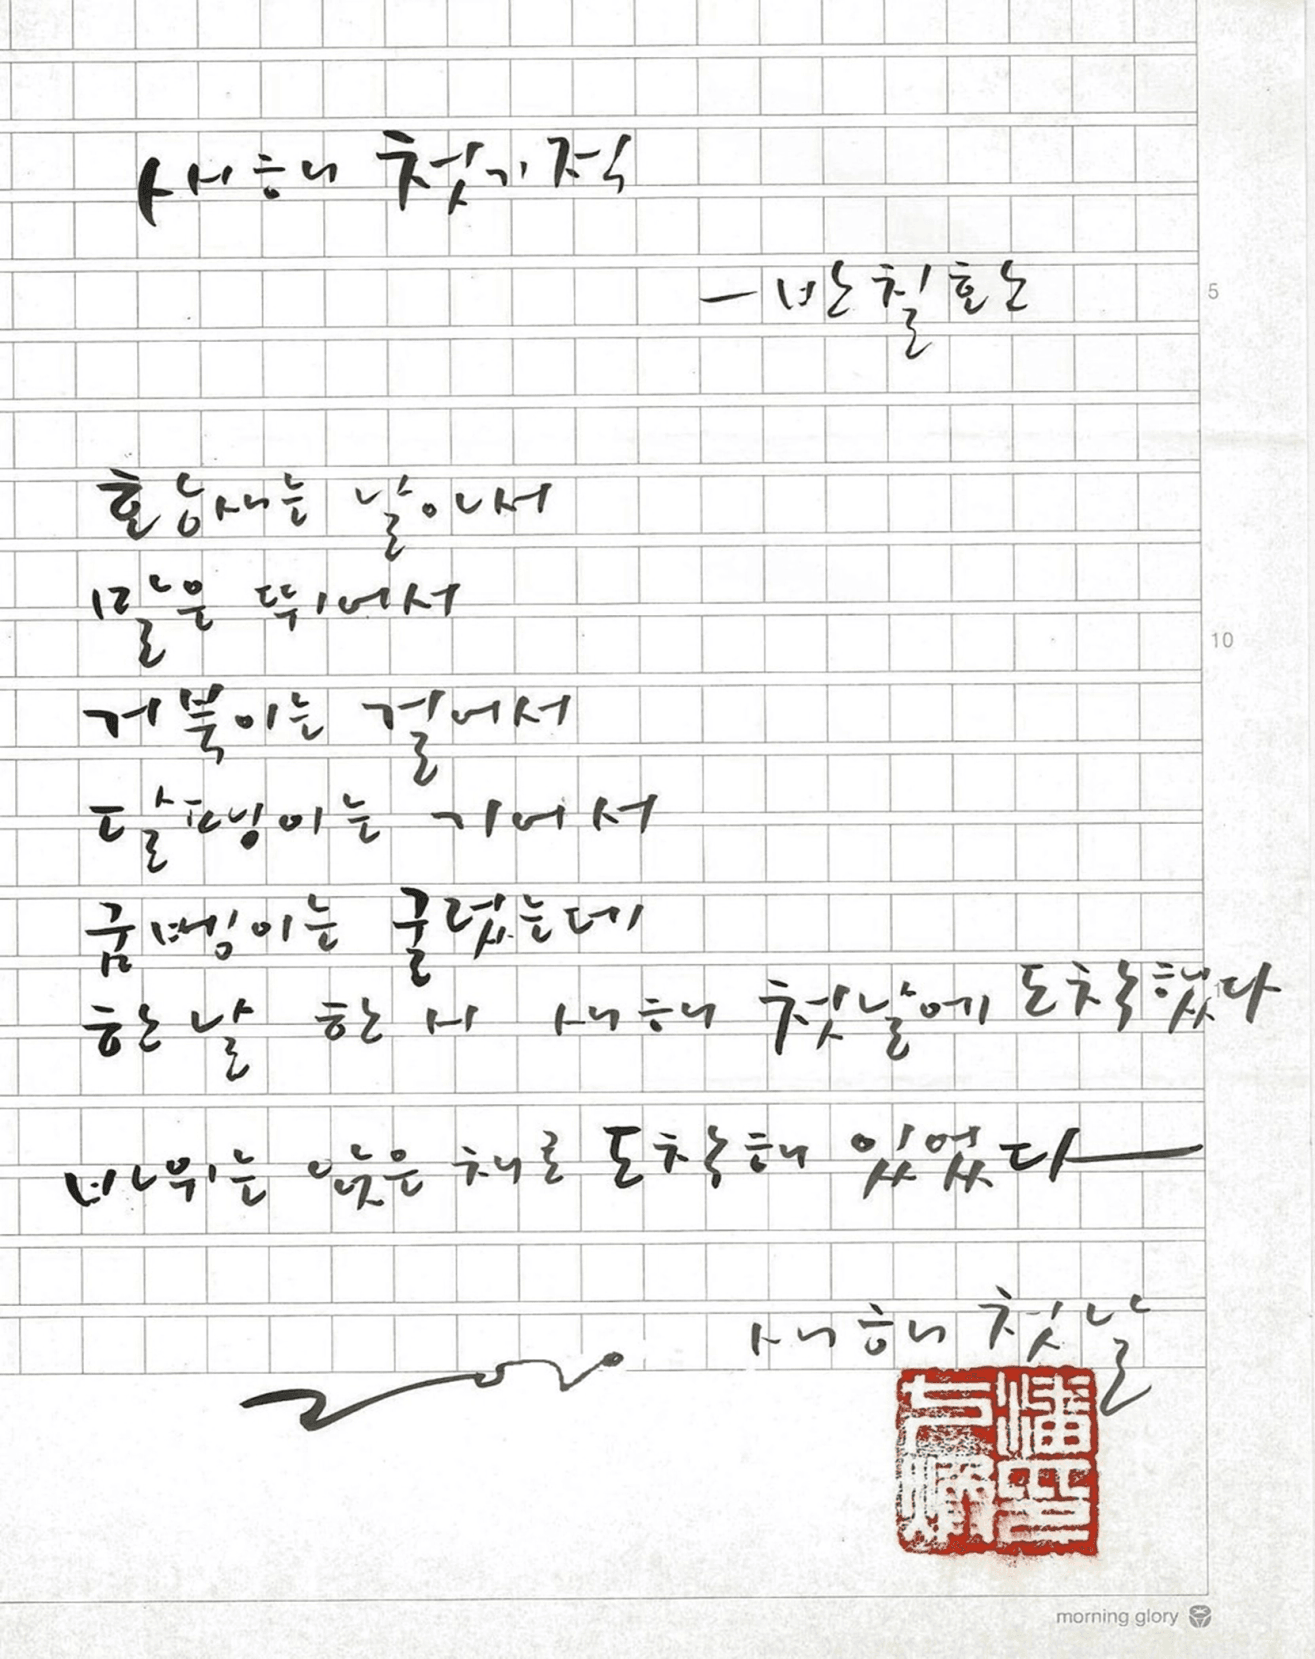 새해 첫 기적
- 반칠환
5
황새는 날아서
말은 뛰어서
10
거북이는 걸어서
달팽이는 기어서
굼벵이는 굴렀는데
한 날 한 시 새해 첫날에 도착했다
바위는 앉은 채로 도착해 있었다
새해 첫날
morning glory